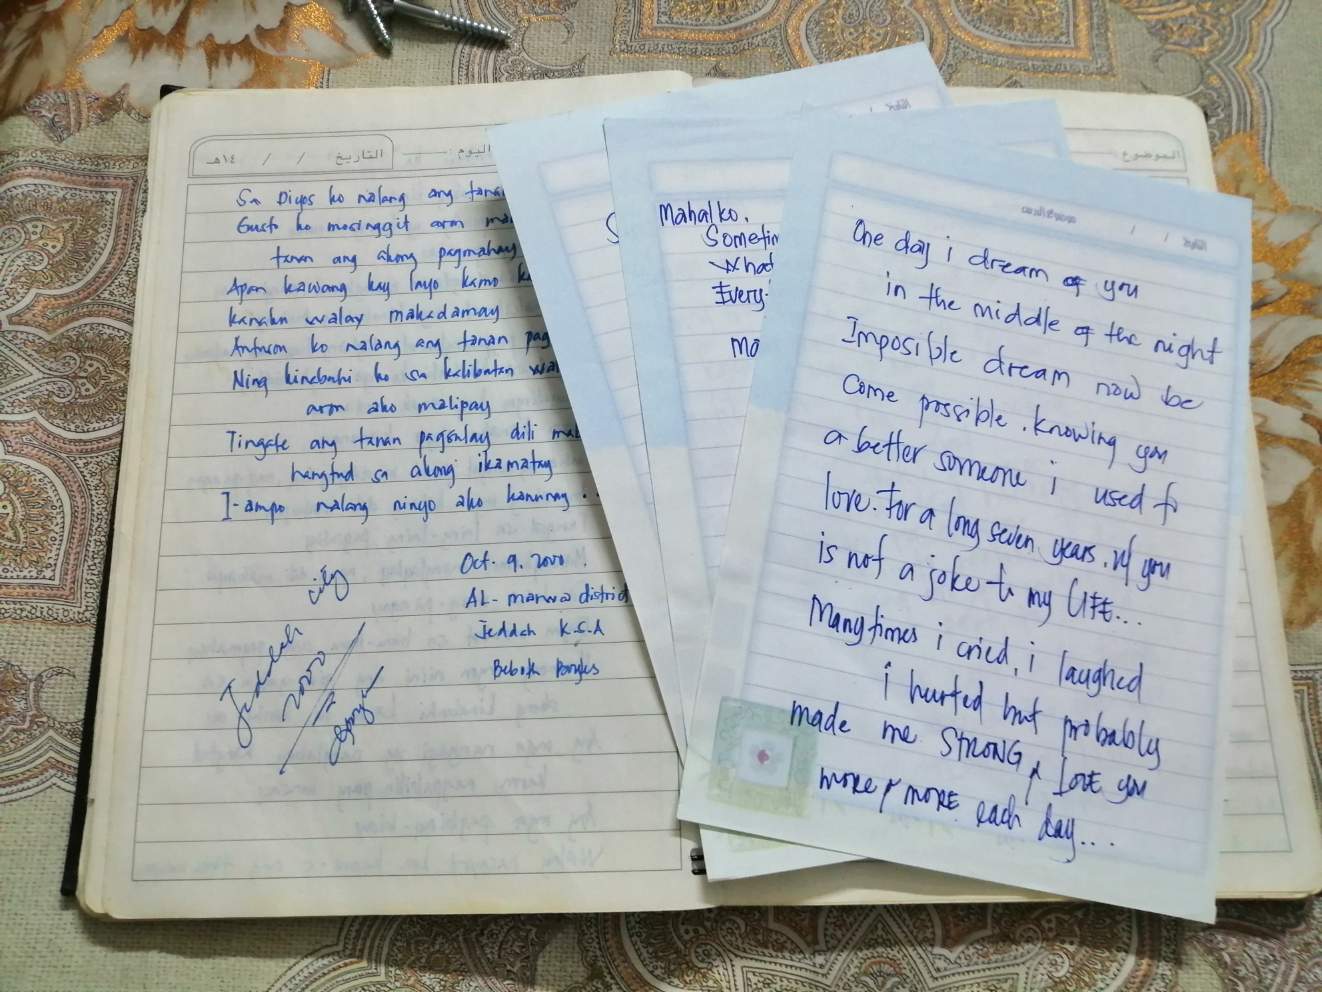 التاريخ / / ١٤هـ
اليوم:
Sa Diyos ko nalang ang tanan
Gusto ko mosinggit aron
tanan ang akong pagmahay
Apan kawang kay layo kamo
kanako walay makadamay
Antuson ko nalang ang tanan
Ning kinabuhi ko sa kalibutan
aron ako malipay
Tingale ang tanan pagsulay dili
hangtud sa akong ikamatay
I-ampo nalang ninyo ako kanunay..
Oct. 9. 2000
AL-marwa district
Jeddah K.S.A
Jeddah city
2000
الموضوع
S
Mahal ko,
Sometim
What
Every
Ma
One day i dream of you
in the middle of the night
Imposible dream now be
come possible. Knowing you
a better someone i used to
love. For a long seven years. w/ you
is not a joke to my LIFE...
Many times i cried, i laughed
i hurted but probably
made me STRONG, & LOVE you
more & MORE each day...